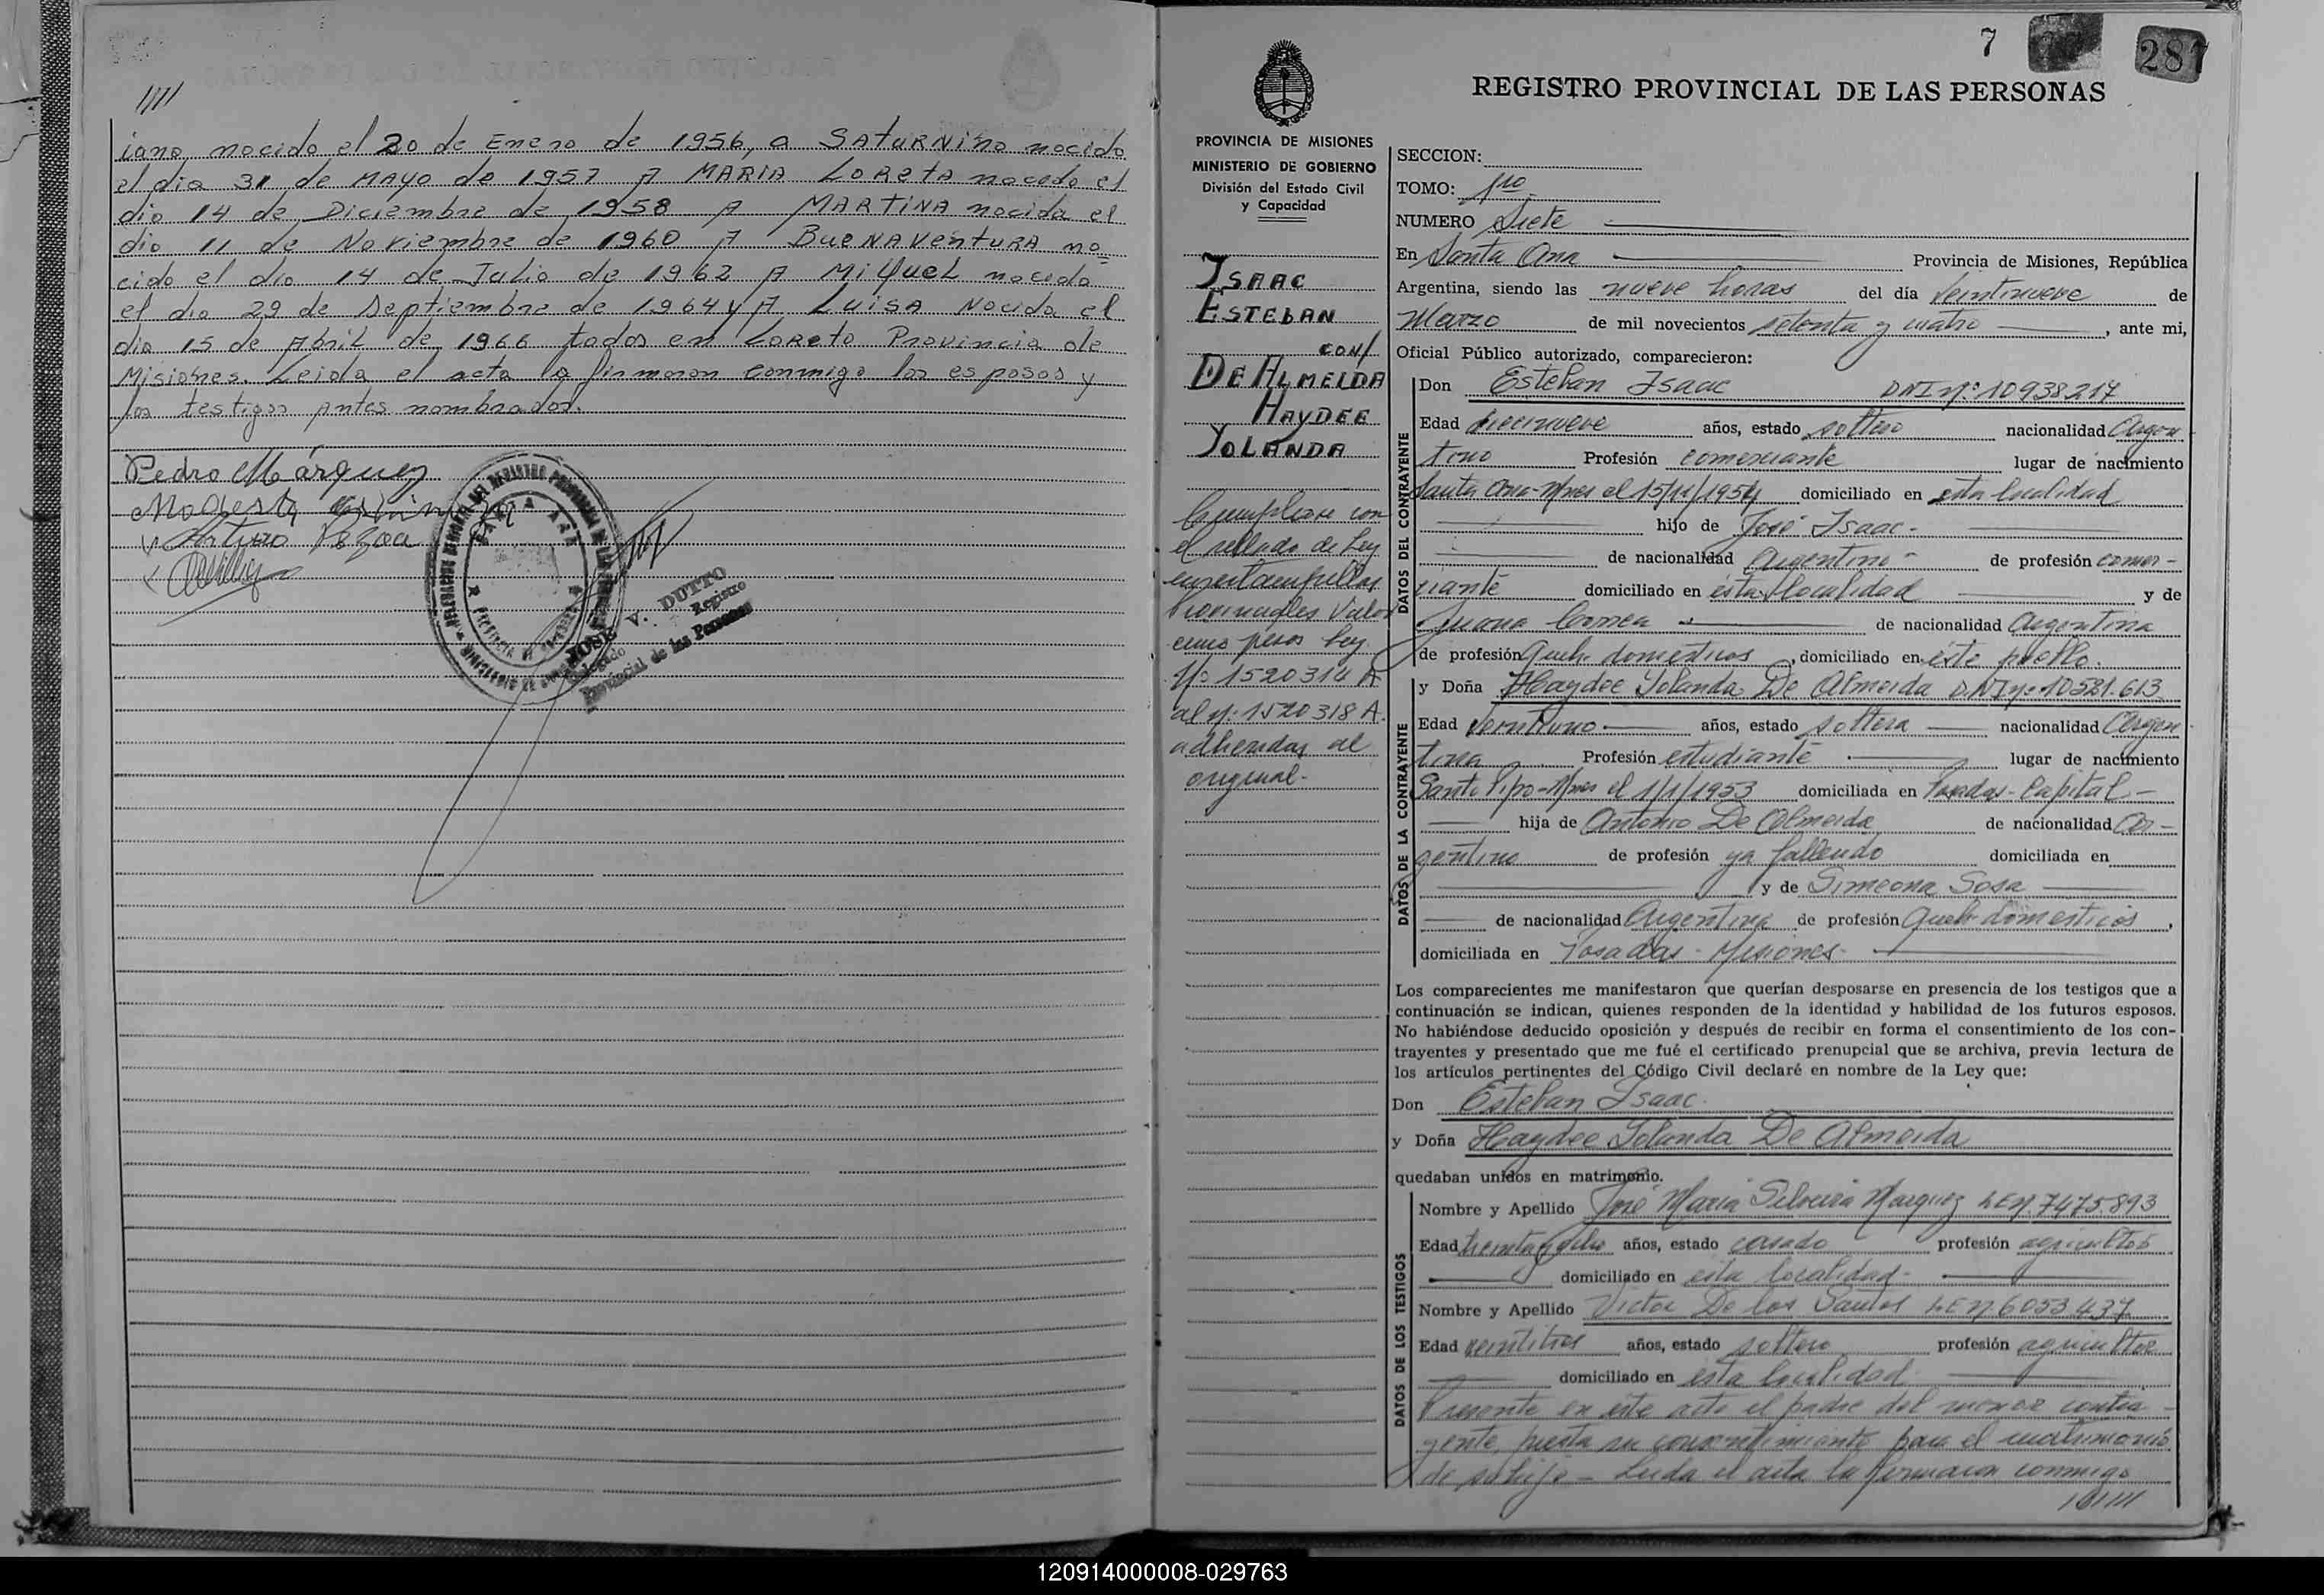 /////
iano, nacido el 20 de Enero de 1956, a SATURNINO nacido
el dia 31 de MAYO de 1957 A MARIA LORETA nacida el
dia 14 de Diciembre de 1958 A MARTINA nacida el
dia 11 de Noviembre de 1960 A BUENAVENTURA na=
cido el dia 14 de Julio de 1962 A MIGUEL nacido
el dia 29 de Septiembre de 1964 y A LUISA Nacida el
dia 15 de Abril de 1966 todos en LORETO Provincia de
Misiones. Leida el acta la firmaron conmigo los esposos y
los testigos antes nombrados.
Pedro Márquez
Arturo
JOSE V. DUTTO
Delegado Registro
Provincial de las Personas
7 287
REGISTRO PROVINCIAL DE LAS PERSONAS
PROVINCIA DE MISIONES
MINISTERIO DE GOBIERNO
División del Estado Civil
y Capacidad
ISAAC
ESTEBAN
CON/
DE ALMEIDA
HAYDEE
YOLANDA
Cumplase con
el sellado de Ley
en estampillas
Provinciales Valor
cinco pesos Ley
Nº 1520314 A
al nº: 1520318 A.
adheridas al
original.-
SECCION:
TOMO: 1ro
NUMERO Siete
En Santa Ana Provincia de Misiones, República
Argentina, siendo las nueve horas del día veintinueve de
Marzo de mil novecientos setenta y cuatro, ante mi,
Oficial Público autorizado, comparecieron:
DATOS DEL CONTRAYENTE
Don Esteban Isaac DNI nº: 10938217
Edad diecinueve años, estado soltero nacionalidad Argen-
tino Profesión comerciante lugar de nacimiento
Santa Ana-Mnes el 15/11/1954 domiciliado en esta localidad
hijo de José Isaac-
de nacionalidad Argentino- de profesión comer-
ciante domiciliado en esta localidad y de
Juana Correa de nacionalidad Argentina
de profesión Queh. domésticos, domiciliado en éste pueblo.
DATOS DE LA CONTRAYENTE
y Doña Haydee Yolanda De Almeida D.N.I nº 10521.613
Edad Veintiuno años, estado soltera nacionalidad Argen-
tina Profesión estudiante lugar de nacimiento
Santo Pipo-Mnes el 1/1/1953 domiciliada en Posadas-Capital-
hija de Antonio De Almeida de nacionalidad Ar-
gentino de profesión ya fallecido domiciliada en
y de Simeona Sosa
de nacionalidad Argentina de profesión Queh domesticos,
domiciliada en Posadas - Misiones-
Los comparecientes me manifestaron que querían desposarse en presencia de los testigos que a
continuación se indican, quienes responden de la identidad y habilidad de los futuros esposos.
No habiéndose deducido oposición y después de recibir en forma el consentimiento de los con-
trayentes y presentado que me fué el certificado prenupcial que se archiva, previa lectura de
los artículos pertinentes del Código Civil declaré en nombre de la Ley que:
Don Esteban Isaac.
y Doña Haydee Yolanda De Almeida
quedaban unidos en matrimonio.
DATOS DE LOS TESTIGOS
Nombre y Apellido José Maria Silveira Marquez LE nº. 7475.893
Edad treinta y ocho años, estado casado profesión agricultor
domiciliado en esta localidad-
Nombre y Apellido Victor De los Santos LE nº. 6053.437
Edad veintitres años, estado soltero profesión agricultor
domiciliado en esta localidad
Presente en éste acto el padre del menor contra-
yente, presta su consentimiento para el matrimonio
de su hijo - Leida el acta la firmaron conmigo
/////
120914000008-029763